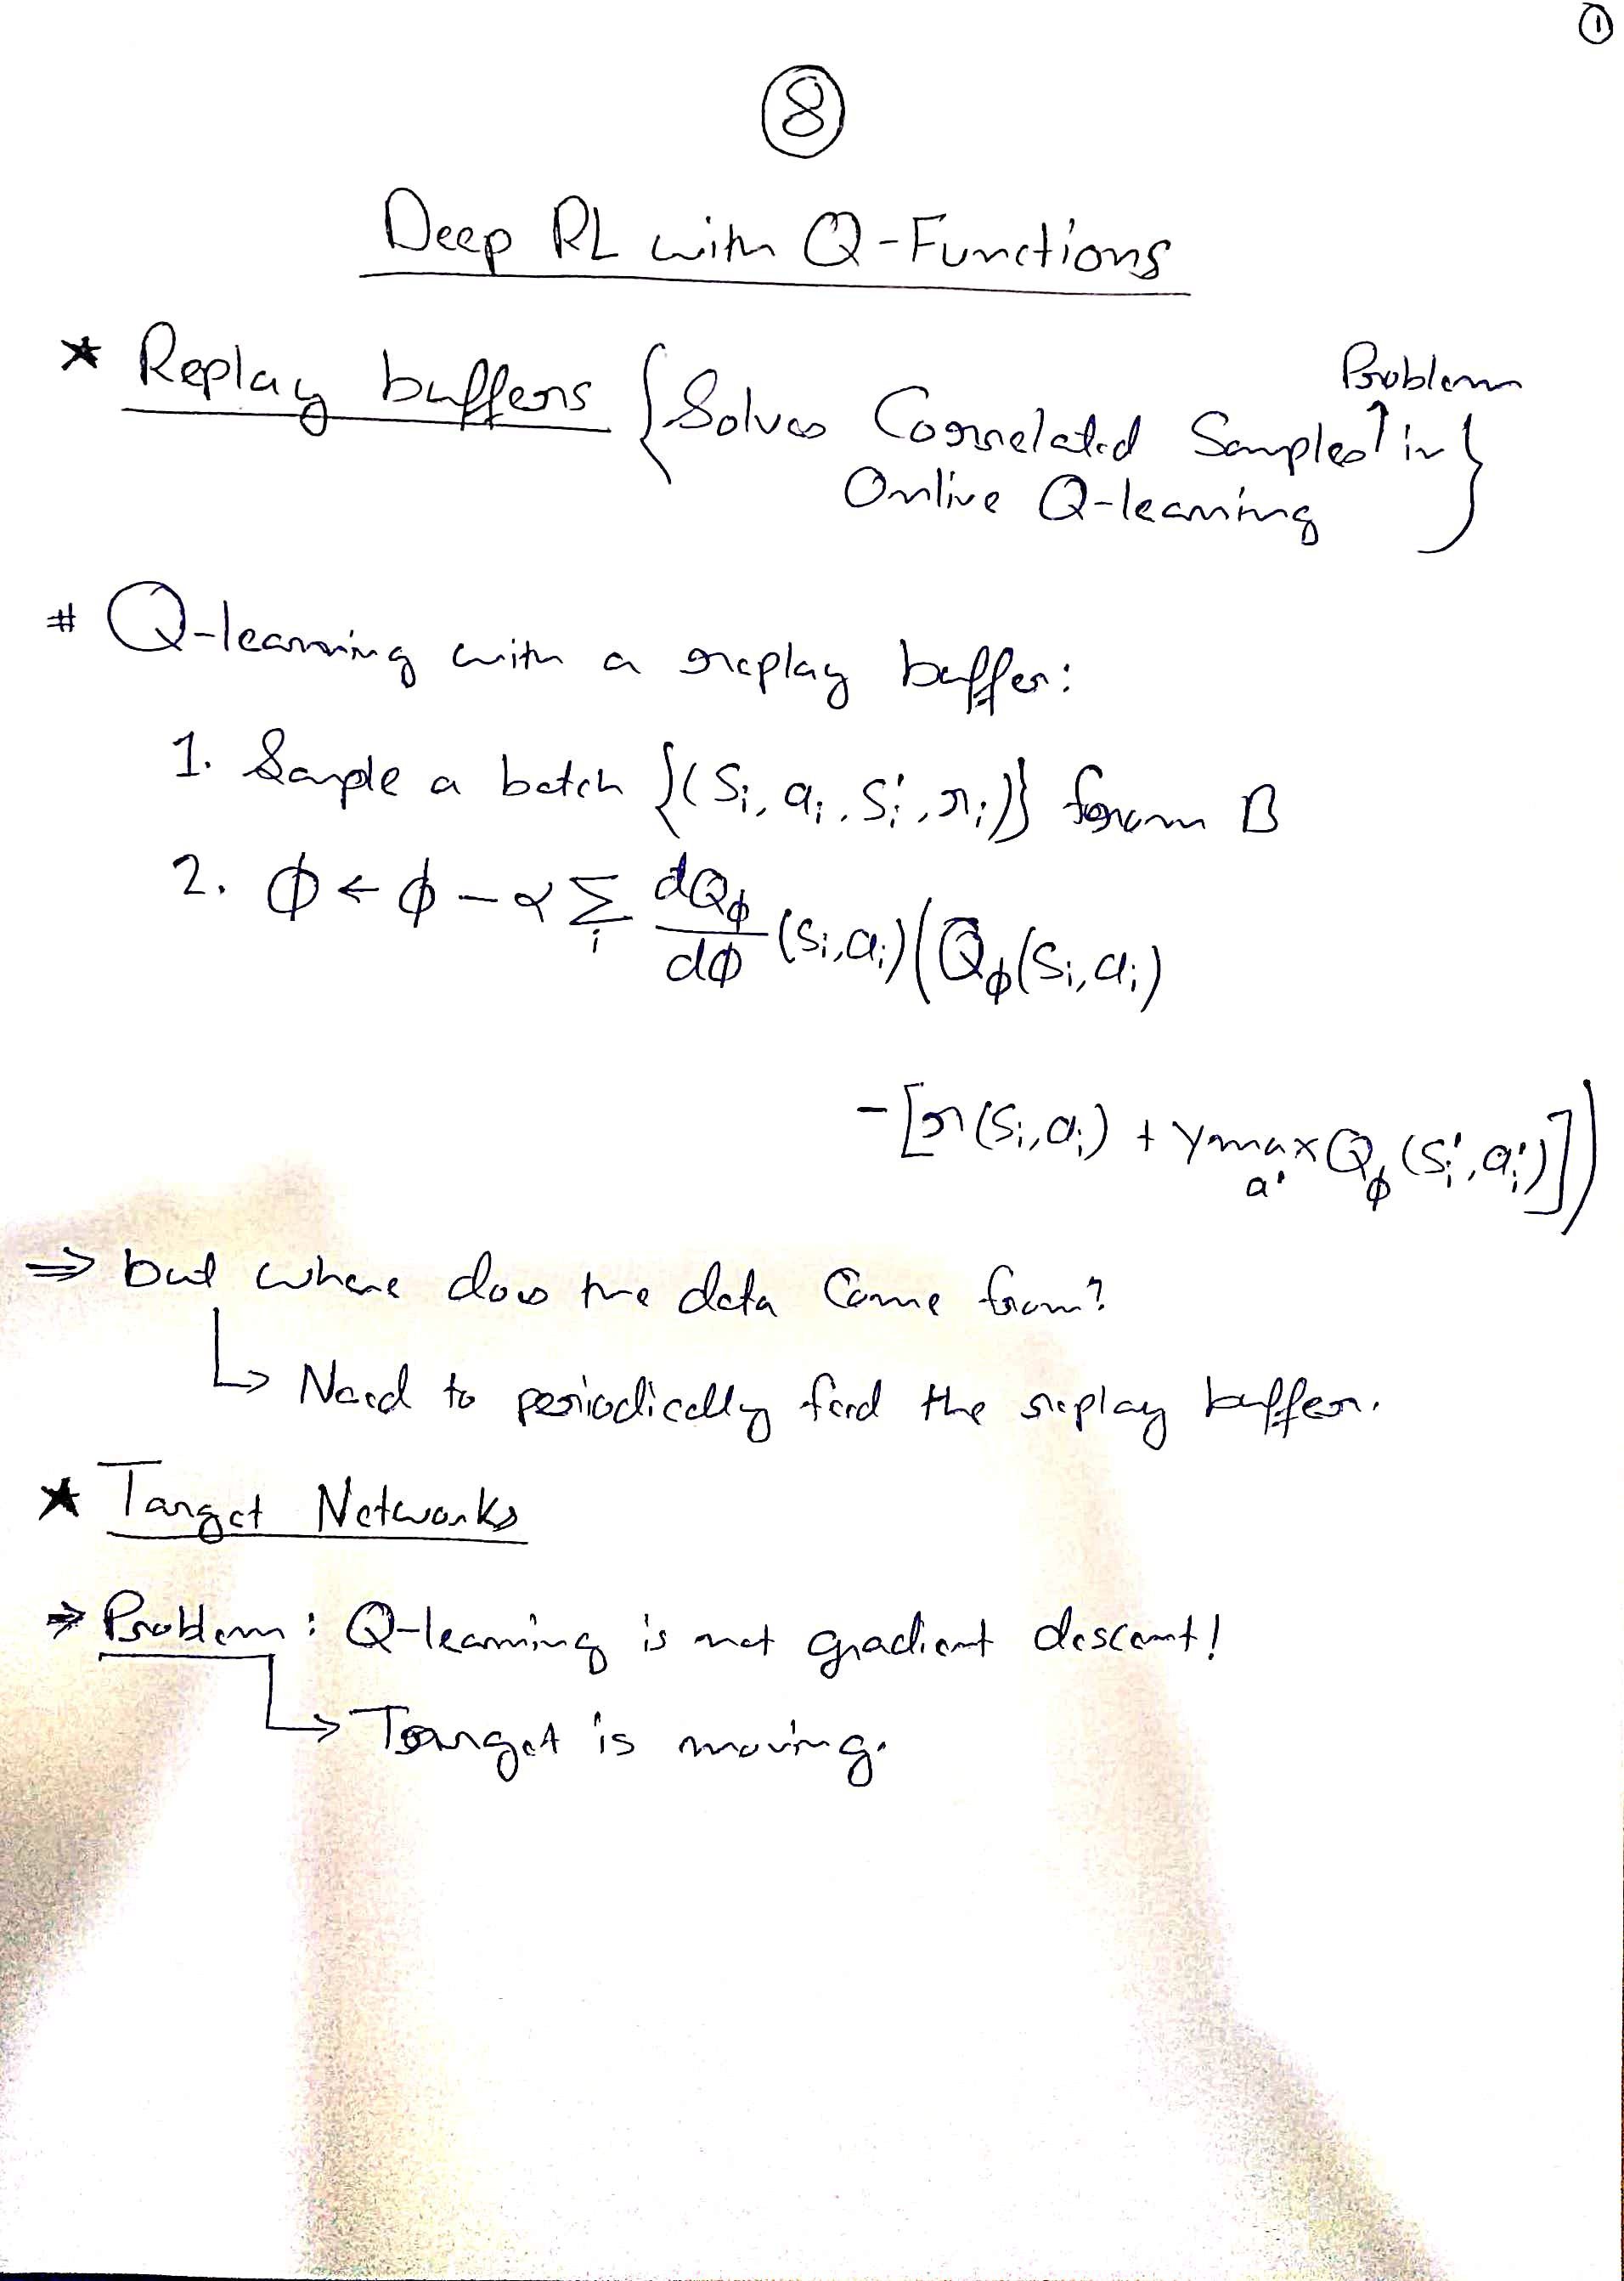 ①
⑧
Deep RL with Q-Functions
★ Replay buffers {Solves Correlated Samples Problem in
Online Q-learning}
# Q-learning with a replay buffer:
1. Sample a batch {(Si, ai, Si', ri)} from B
2. ϕ ← ϕ - α Σi dQϕ/dϕ (Si, ai)(Qϕ(Si, ai)
- [r(Si, ai) + γ max a' Qϕ(Si', ai')])
⇒ but where does the data Come from?
↳ Need to periodically feed the replay buffer.
★ Target Networks
⇒ Problem: Q-learning is not gradient descent!
↳ Target is moving.